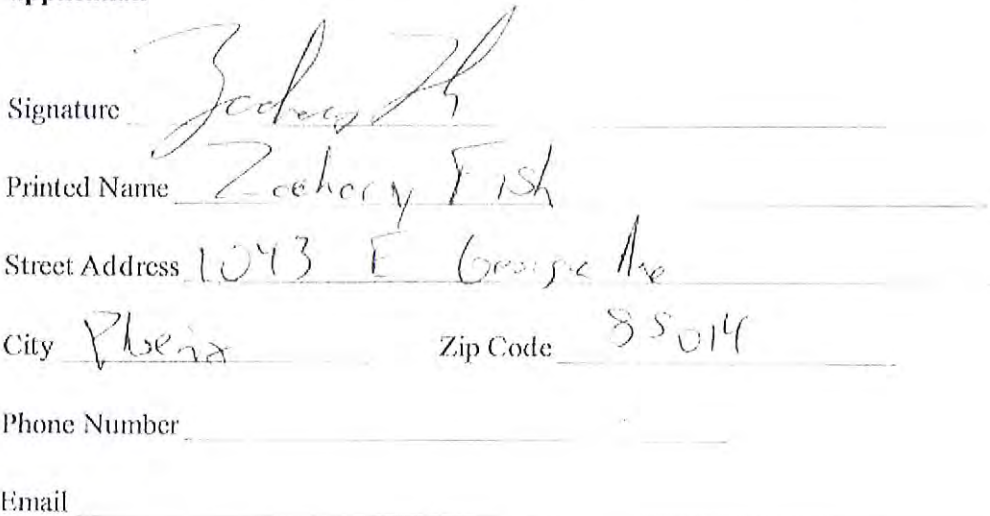 Signature Zachary
Printed Name Zachary Fish
Street Address 1043 E Georgia Ave
City Phoenix Zip Code 85014
Phone Number
Email